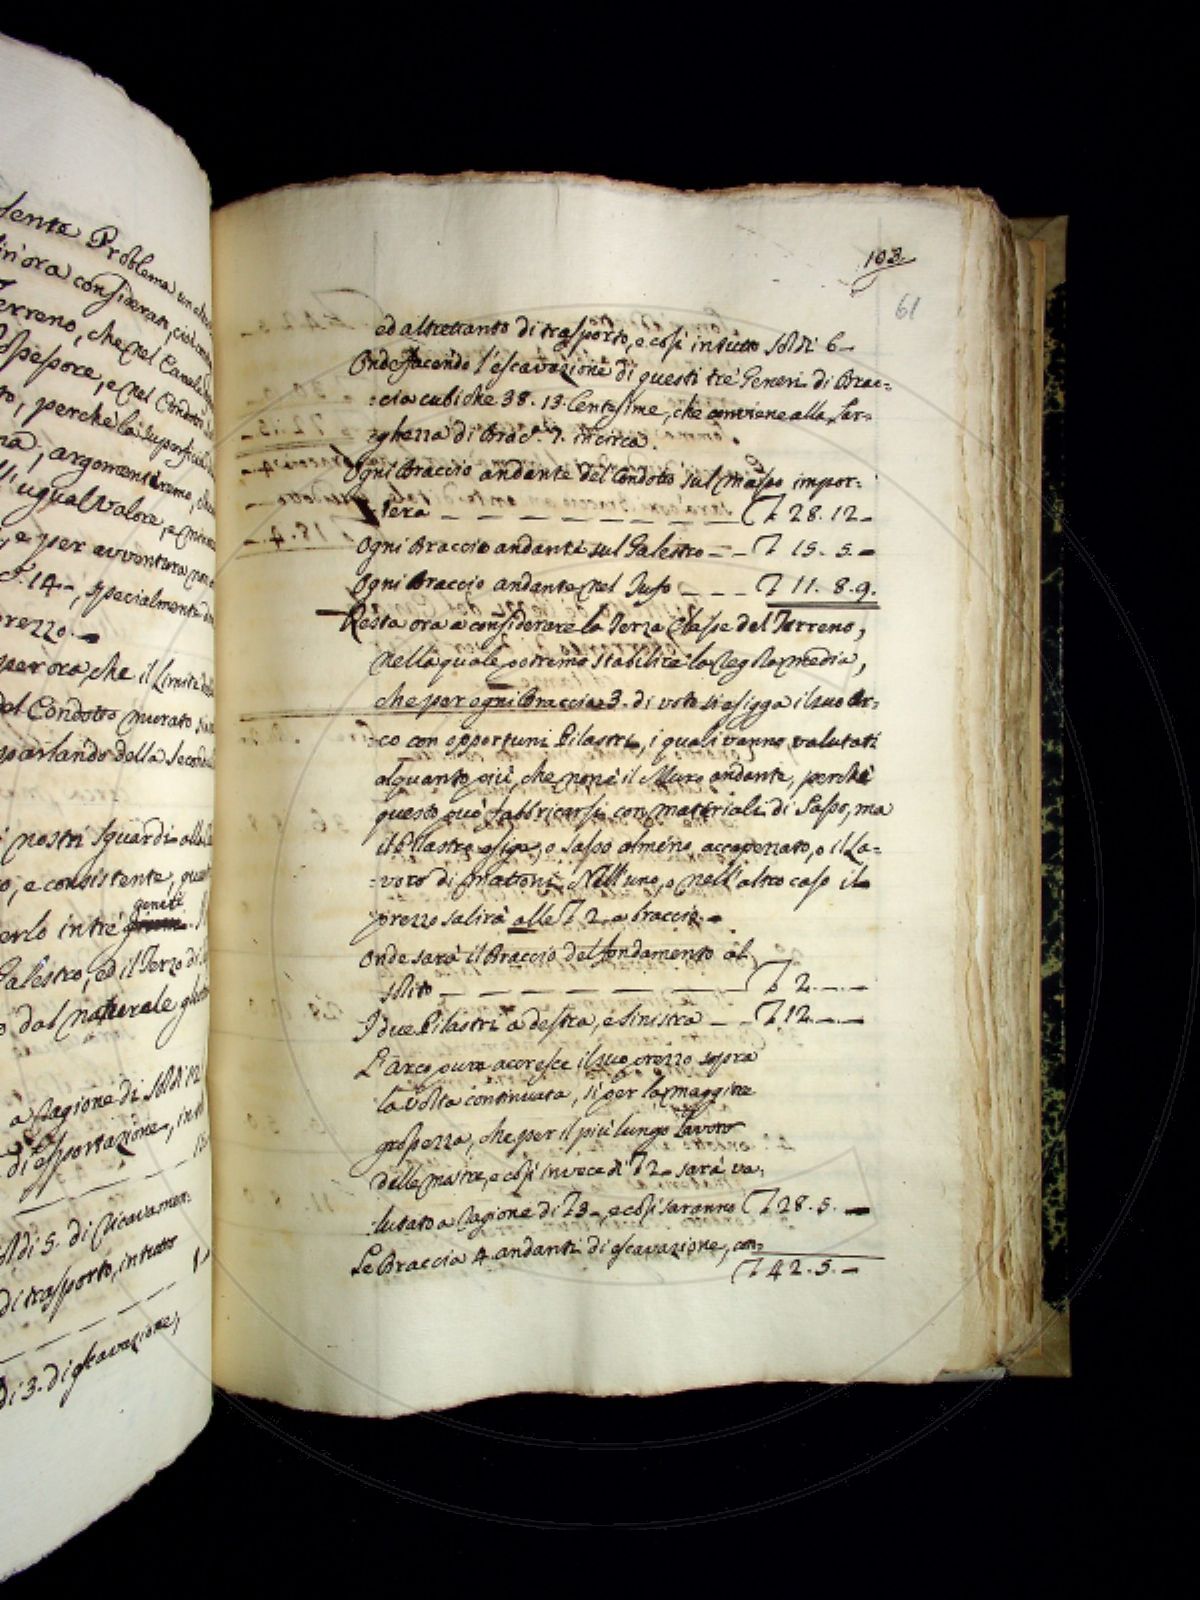 sente Problema un altro
in'ora considerati, cioè
Terreno, che nel Canale
spessore, e nel Condotto
to, perchè la superficie
na, argomentiremo, che
l'ugual valore, e min
, e per avventura non
£. 14 -, specialmente
prezzo. -
per ora, che il Limite
del Condotto murato sia
parlando della Seconda
i nostri sguardi alla
o, e consistente, que
geneti
erlo in tré generi.
Galestro, ed il Terzo di
o dal naturale
a ragione di soldi 12
di esportazione, in
soldi 5. di ricavamen-
di trasporto, in tutto
di 3. di escavazione,
103
61
ed altrettanto di trasporto, e così in tutto soldi 6 -
Onde facendo l'escavazione di questi trè Generi di Brac=
=cia cubiche 38. 13. Centesime, che conviene alla Lar=
=ghezza di Brac. 7. in circa.
Ogni Braccio andante del Condotto sul masso impor=
terà — — — — £ 28. 12 -
Ogni Braccio andante sul Galestro — — £ 15. 5. -
Ogni Braccio andante nel Tufo — — — £ 11. 8. 9.
Resta ora a considerare la Terza Classe del Terreno,
nella quale potremo stabilire la regola media,
che per ogni Braccia 3. di voto si esigga il suo Ar=
=co con opportuni Pilastri, i quali vanno valutati
alquanto più, che non è il Muro andante, perchè
questo può fabbricarsi con materiali di Sasso, ma
il Pilastro esige, o sasso almeno accapenato, o il La=
=voro di mattoni. Nell'uno, o nell'altro caso il
prezzo salirà alle £ 2. a braccio. -
Onde sarà il Braccio del fondamento al
solito — — — — £ 2. — —
I due Pilastri a destra, e sinistra — — £ 12. — —
L'arco pure accresce il suo prezzo sopra
la volta continuata, sì per la maggiore
grossezza, che per il più lungo Lavoro
delle mostre, e così invece di £ 2 - sarà va=
lutato a ragione di £ 3 -, e così saranno £ 28. 5. -
Le Braccia 4 andanti di escavazione, con=
£ 42. 5. -